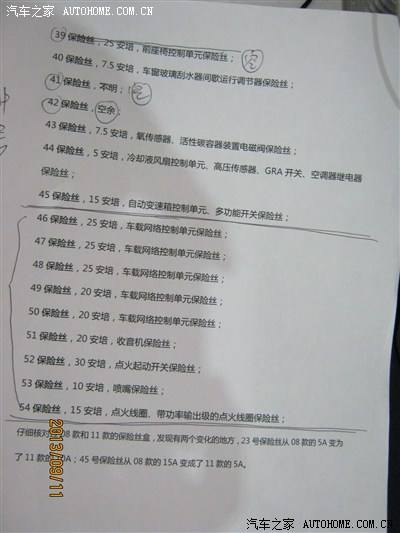 汽车之家 AUTOHOME.COM.CN
39 保险丝，25 安培，前座椅控制单元保险丝；空
40 保险丝，7.5 安培，车窗玻璃刮水器间歇运行调节器保险丝；
41 保险丝，不明；空
42 保险丝，空余；
43 保险丝，7.5 安培，氧传感器、活性碳容器装置电磁阀保险丝；
44 保险丝，5 安培，冷却液风扇控制单元、高压传感器、GRA 开关、空调器继电器
保险丝；
45 保险丝，15 安培，自动变速箱控制单元、多功能开关保险丝；
46 保险丝，25 安培，车载网络控制单元保险丝；
47 保险丝，25 安培，车载网络控制单元保险丝；
48 保险丝，25 安培，车载网络控制单元保险丝；
49 保险丝，20 安培，车载网络控制单元保险丝；
50 保险丝，20 安培，车载网络控制单元保险丝；
51 保险丝，20 安培，收音机保险丝；
52 保险丝，30 安培，点火起动开关保险丝；
53 保险丝，10 安培，喷嘴保险丝；
54 保险丝，15 安培，点火线圈、带功率输出级的点火线圈保险丝；
仔细核对 08 款和 11 款的保险丝盒，发现有两个变化的地方，23 号保险丝从 08 款的 5A 变为
了 11 款的 0A；45 号保险丝从 08 款的 15A 变成了 11 款的 5A。
2013/09/11
汽车之家 AUTOHOME.COM.CN